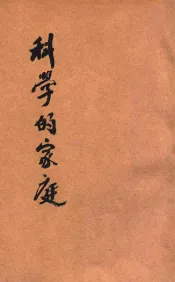 科學的家庭